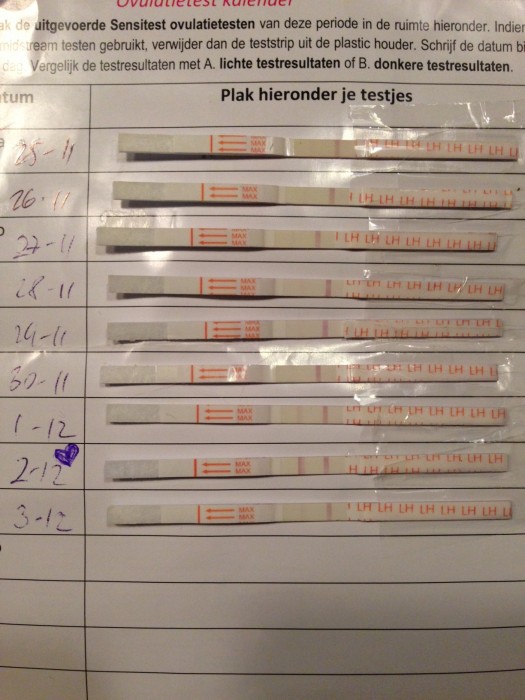 Ovulatietest kalender
ak de uitgevoerde Sensitest ovulatietesten van deze periode in de ruimte hieronder. Indien
midstream testen gebruikt, verwijder dan de teststrip uit de plastic houder. Schrijf de datum bi
dag. Vergelijk de testresultaten met A. lichte testresultaten of B. donkere testresultaten.
tum Plak hieronder je testjes
25-11 MAX MAX LH LH LH LH LH
26-11 MAX MAX LH LH LH LH LH LH
27-11 MAX MAX LH LH LH LH LH LH LH
28-11 MAX MAX LH LH LH LH LH LH LH
29-11 MAX MAX LH LH LH LH LH LH LH
30-11 MAX MAX LH LH LH LH LH LH
1-12 MAX MAX LH LH LH LH LH LH LH
2-12 MAX MAX LH LH LH LH LH LH LH
3-12 MAX MAX LH LH LH LH LH LH LH